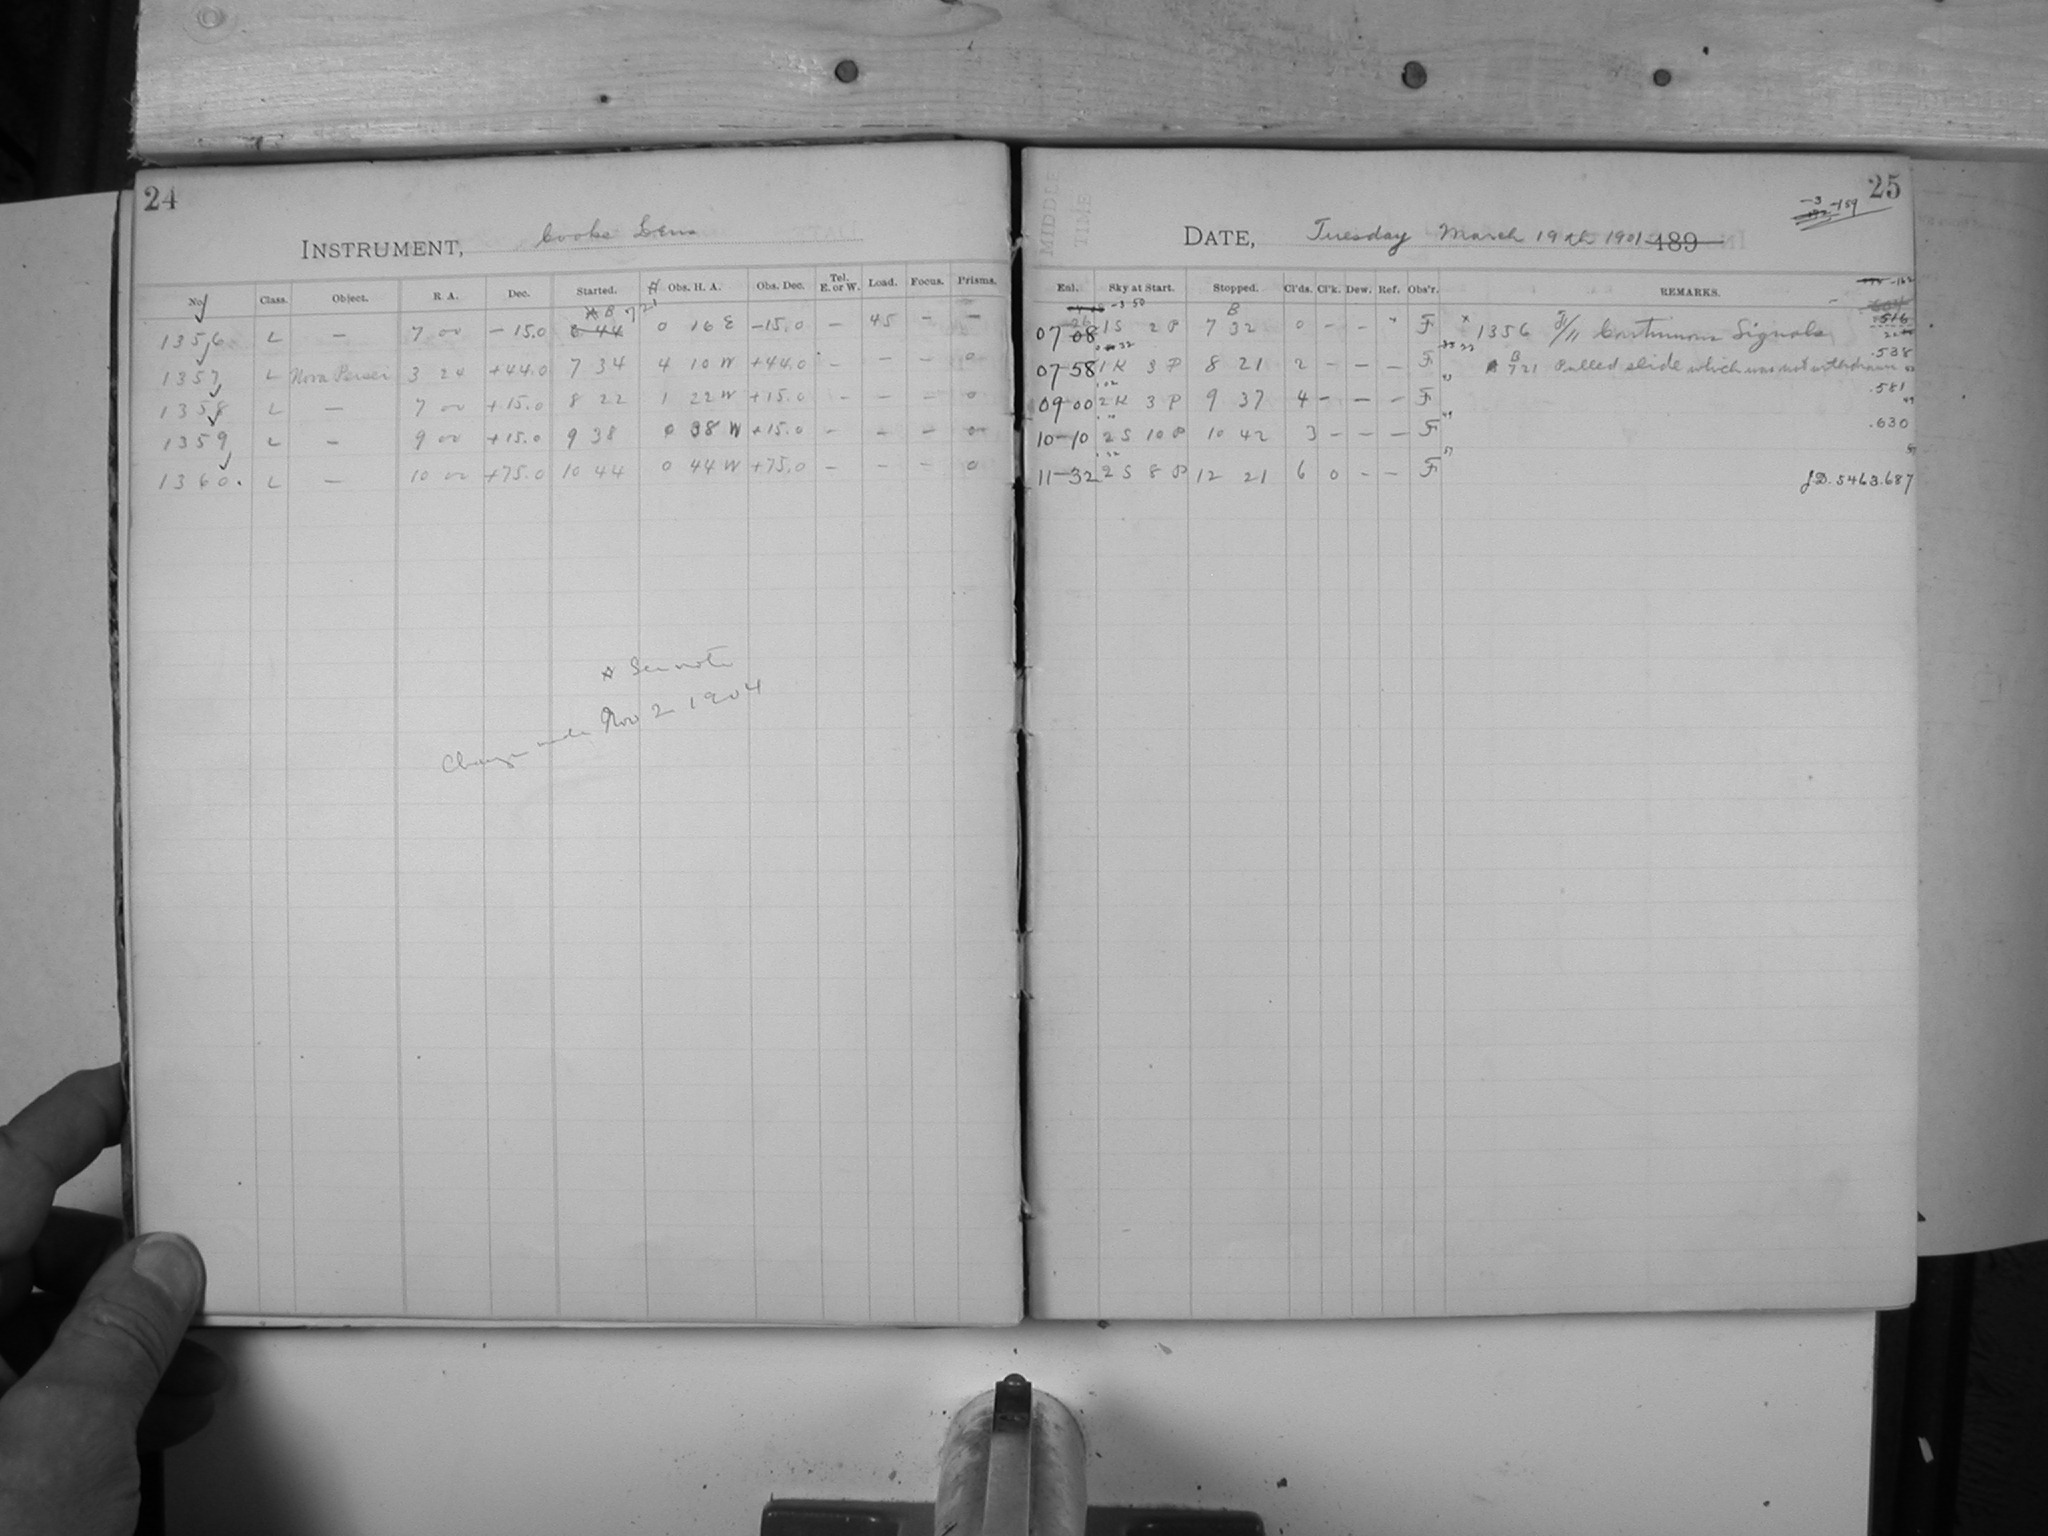 24
INSTRUMENT, Cooke Lens
No. Class. Object. R. A. Dec. Started. Obs. H. A. Obs. Dec. Tel. E. or W. Load. Focus. Prisms.
B 7 21
1356 L — 7 00 -15.0 6 44 0 16 E -15.0 — 45 — —
1357 L Nova Persei 3 24 +44.0 7 34 4 10 W +44.0 — — — 0
1358 L — 7 00 +15.0 8 22 1 22 W +15.0 — — — 0
1359 L — 9 00 +15.0 9 38 0 38 W +15.0 — — — 0
1360. L — 10 00 +75.0 10 44 0 44 W +75.0 — — — 0
See note
Change made Nov 2 1904
25
-3 -159
MIDDLE
TIME
DATE, Tuesday March 19th 1901 189
Exl. Sky at Start. Stopped. Cl'ds. Cl'k. Dew. Ref. Obs'r. REMARKS.
-162
-3 50 B
07 08 1S 2P 7 32 0 — — " F 1356 F/11 Continuous Signals .516
26
07-58 1K 3P 8 21 2 — — — F B 7 21 Pulled slide which was not withdrawn .538
09-00 2K 3P 9 37 4 — — — F .581
10-10 2S 10P 10 42 3 — — — F .630
11-32 2S 8P 12 21 6 0 — — F J.D. 5463.687